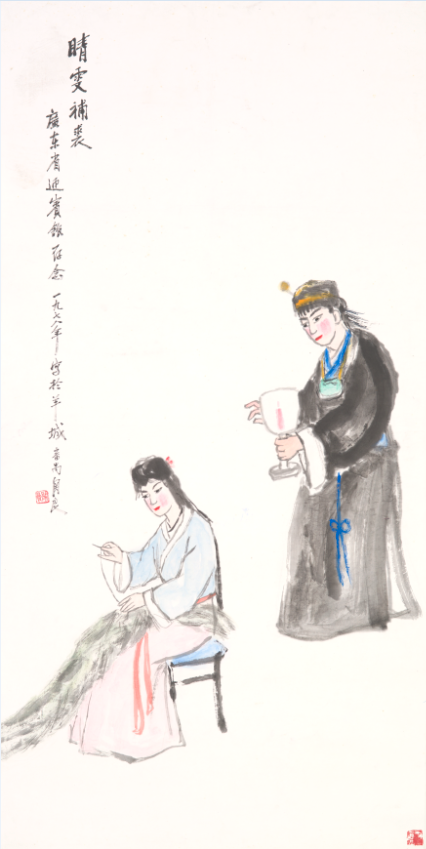 晴雯補裘
廣东省迎賓館存念 一九七八年 写於羊城